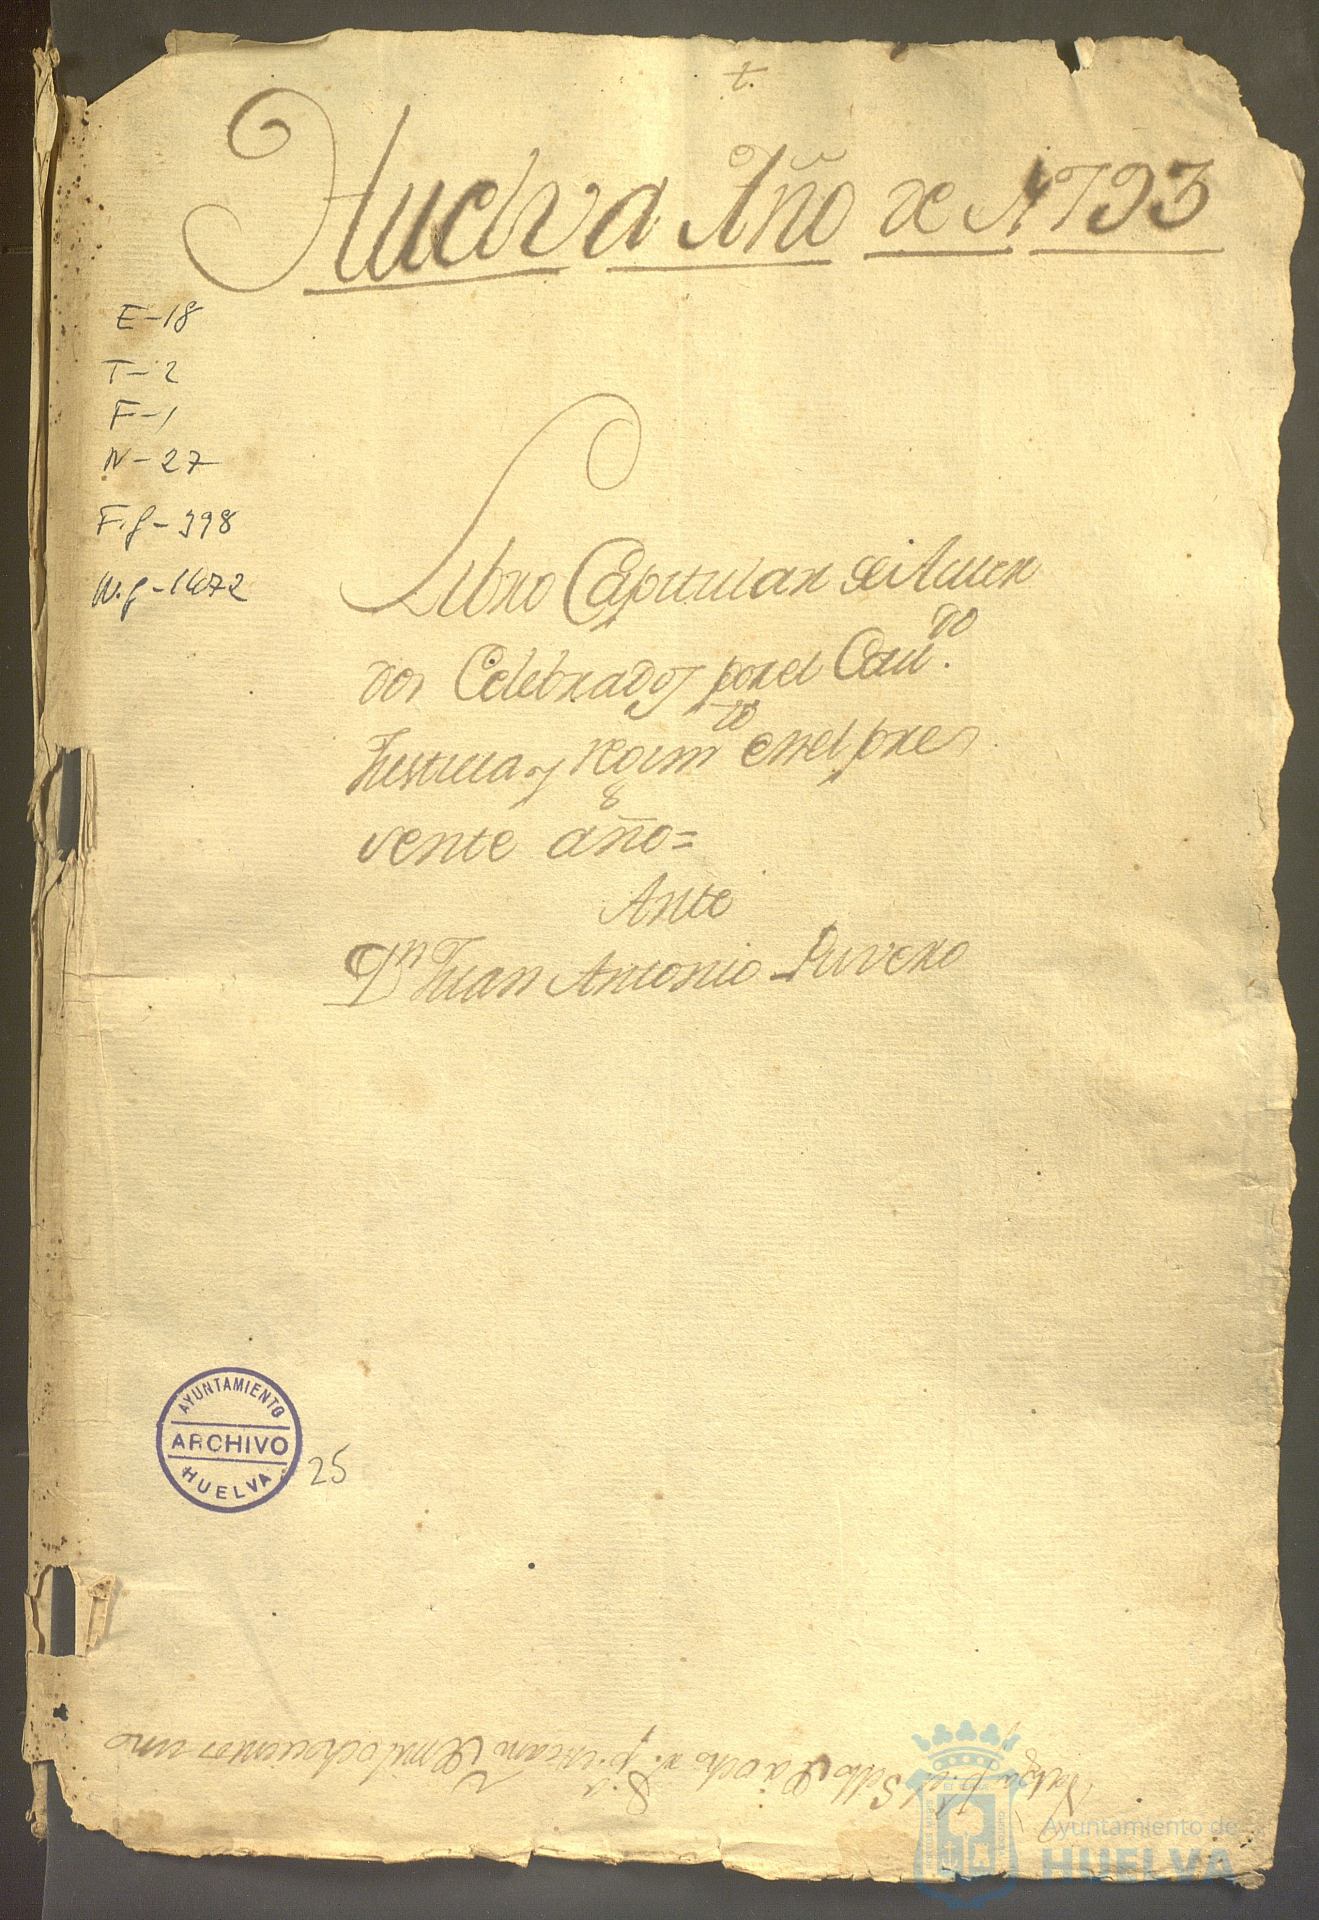 t.
Huelva Año de 1793
E-18
T-2
F-1
N-27
F.g-398
N.g-1472
Libro Capitular de Acuer
dos Celebrados por el Cav.do
Justicia y regim.to en el pre
sente año=
Ante
Dn Juan Antonio Rivero
AYUNTAMIENTO
ARCHIVO
HUELVA
25
Valga p.a el Sello
mil ochocientos uno
Ayuntamiento de
HUELVA